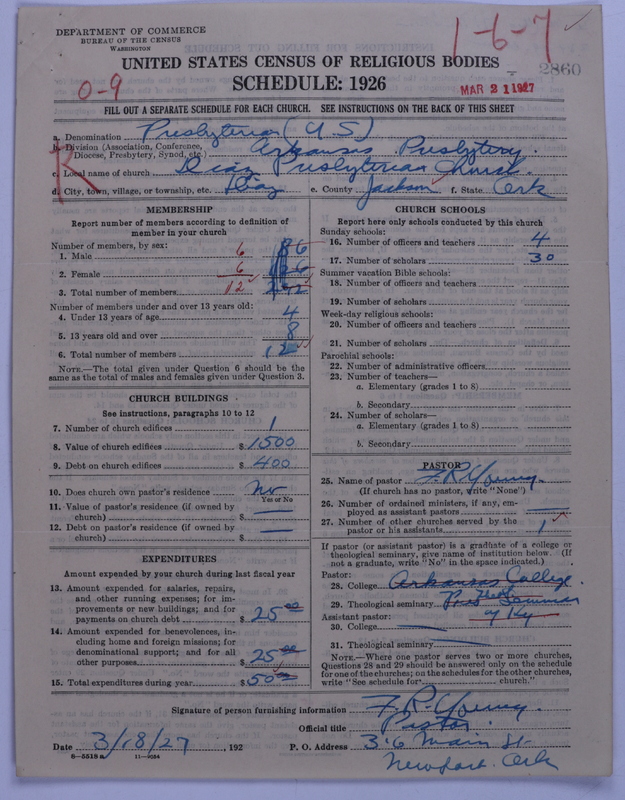 DEPARTMENT OF COMMERCE
BUREAU OF THE CENSUS
WASHINGTON
1-6-7
UNITED STATES CENSUS OF RELIGIOUS BODIES
2860
SCHEDULE: 1926
0-9
MAR 21 1927
FILL OUT A SEPARATE SCHEDULE FOR EACH CHURCH. SEE INSTRUCTIONS ON THE BACK OF THIS SHEET
R
a. Denomination Presbyterian (U S)
b. Division (Association, Conference, Diocese, Presbytery, Synod, etc.) Arkansas Presbytery.
c. Local name of church Diaz Presbyterian Church.
d. City, town, village, or township, etc. Diaz e. County Jackson f. State Ark
MEMBERSHIP
Report number of members according to definition of
member in your church
Number of members, by sex:
1. Male 6
2. Female 6
3. Total number of members 12
Number of members under and over 13 years old:
4. Under 13 years of age 4
5. 13 years old and over 8
6. Total number of members 12
NOTE.—The total given under Question 6 should be
same as the total of males and females given under Question 3.
CHURCH BUILDINGS
See instructions, paragraphs 10 to 12
7. Number of church edifices 1
8. Value of church edifices $ 1500
9. Debt on church edifices $ 400
10. Does church own pastor's residence No
Yes or No
11. Value of pastor's residence (if owned by
church) $ —
12. Debt on pastor's residence (if owned by
church) $ —
EXPENDITURES
Amount expended by your church during last fiscal year
13. Amount expended for salaries, repairs,
and other running expenses; for im-
provements or new buildings; and for
payments on church debt $ 25 00
14. Amount expended for benevolences, in-
cluding home and foreign missions; for
denominational support; and for all
other purposes $ 25 00
15. Total expenditures during year $ 50 00
CHURCH SCHOOLS
Report here only schools conducted by this church
Sunday schools:
16. Number of officers and teachers 4
17. Number of scholars 30
Summer vacation Bible schools:
18. Number of officers and teachers
19. Number of scholars
Week-day religious schools:
20. Number of officers and teachers
21. Number of scholars
Parochial schools:
22. Number of administrative officers
23. Number of teachers—
a. Elementary (grades 1 to 8)
b. Secondary
24. Number of scholars—
a. Elementary (grades 1 to 8)
b. Secondary
PASTOR
25. Name of pastor F. R. Young.
(If church has no pastor, write "None")
26. Number of ordained ministers, if any, em-
ployed as assistant pastors —
27. Number of other churches served by the
pastor or his assistants 1
If pastor (or assistant pastor) is a graduate of a college or
theological seminary, give name of institution below. (If
not a graduate, write "No" in the space indicated.)
Pastor:
28. College Arkansas College.
29. Theological seminary Pres Seminar
of Ky
Assistant pastor:
30. College
31. Theological seminary
NOTE.—Where one pastor serves two or more churches,
Questions 28 and 29 should be answered only on the schedule
for one of the churches; on the schedules for the other churches,
write "See schedule for church."
Signature of person furnishing information F. R. Young.
Official title Pastor.
Date 3/18/27, 192 P. O. Address 316 Main St
Newport. Ark
8—5518a 11—9034